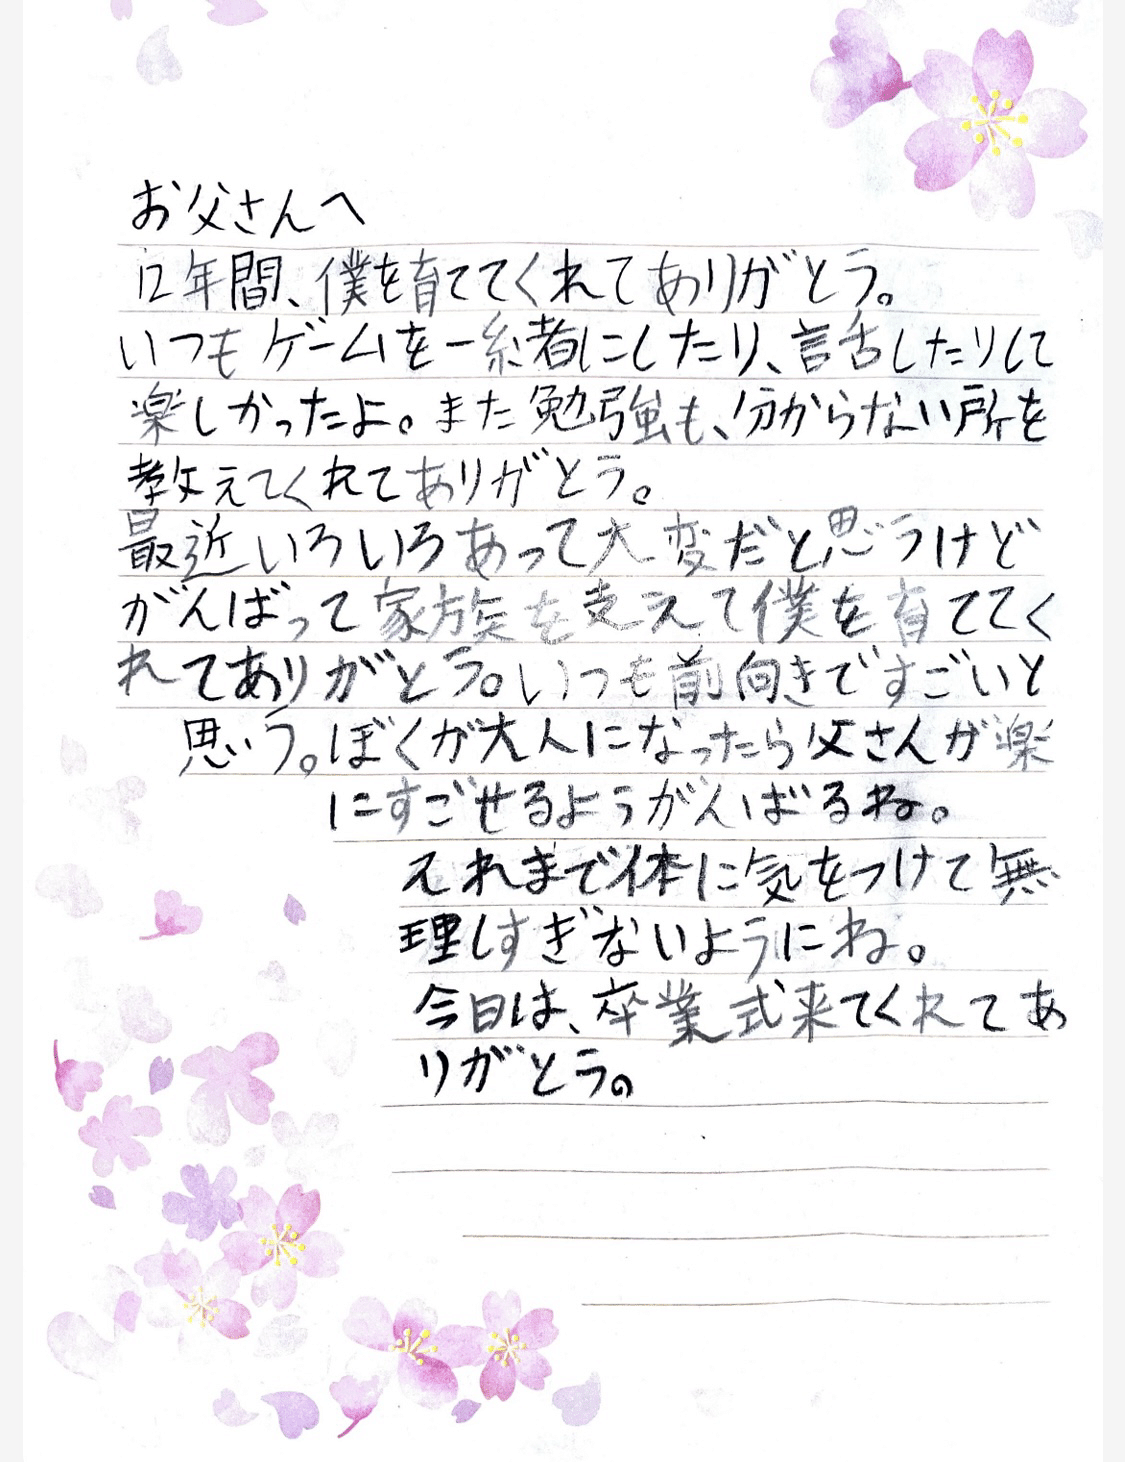 お父さんへ
12年間、僕を育ててくれてありがとう。
いつもゲームを一緒にしたり、話したりして
楽しかったよ。また勉強も、分からない所を
教えてくれてありがとう。
最近いろいろあって大変だと思うけど
がんばって家族を支えて僕を育ててく
れてありがとう。いつも前向きですごいと
思う。ぼくが大人になったら父さんが楽
にすごせるようがんばるね。
それまで体に気をつけて無
理しすぎないようにね。
今日は、卒業式来てくれてあ
りがとう。